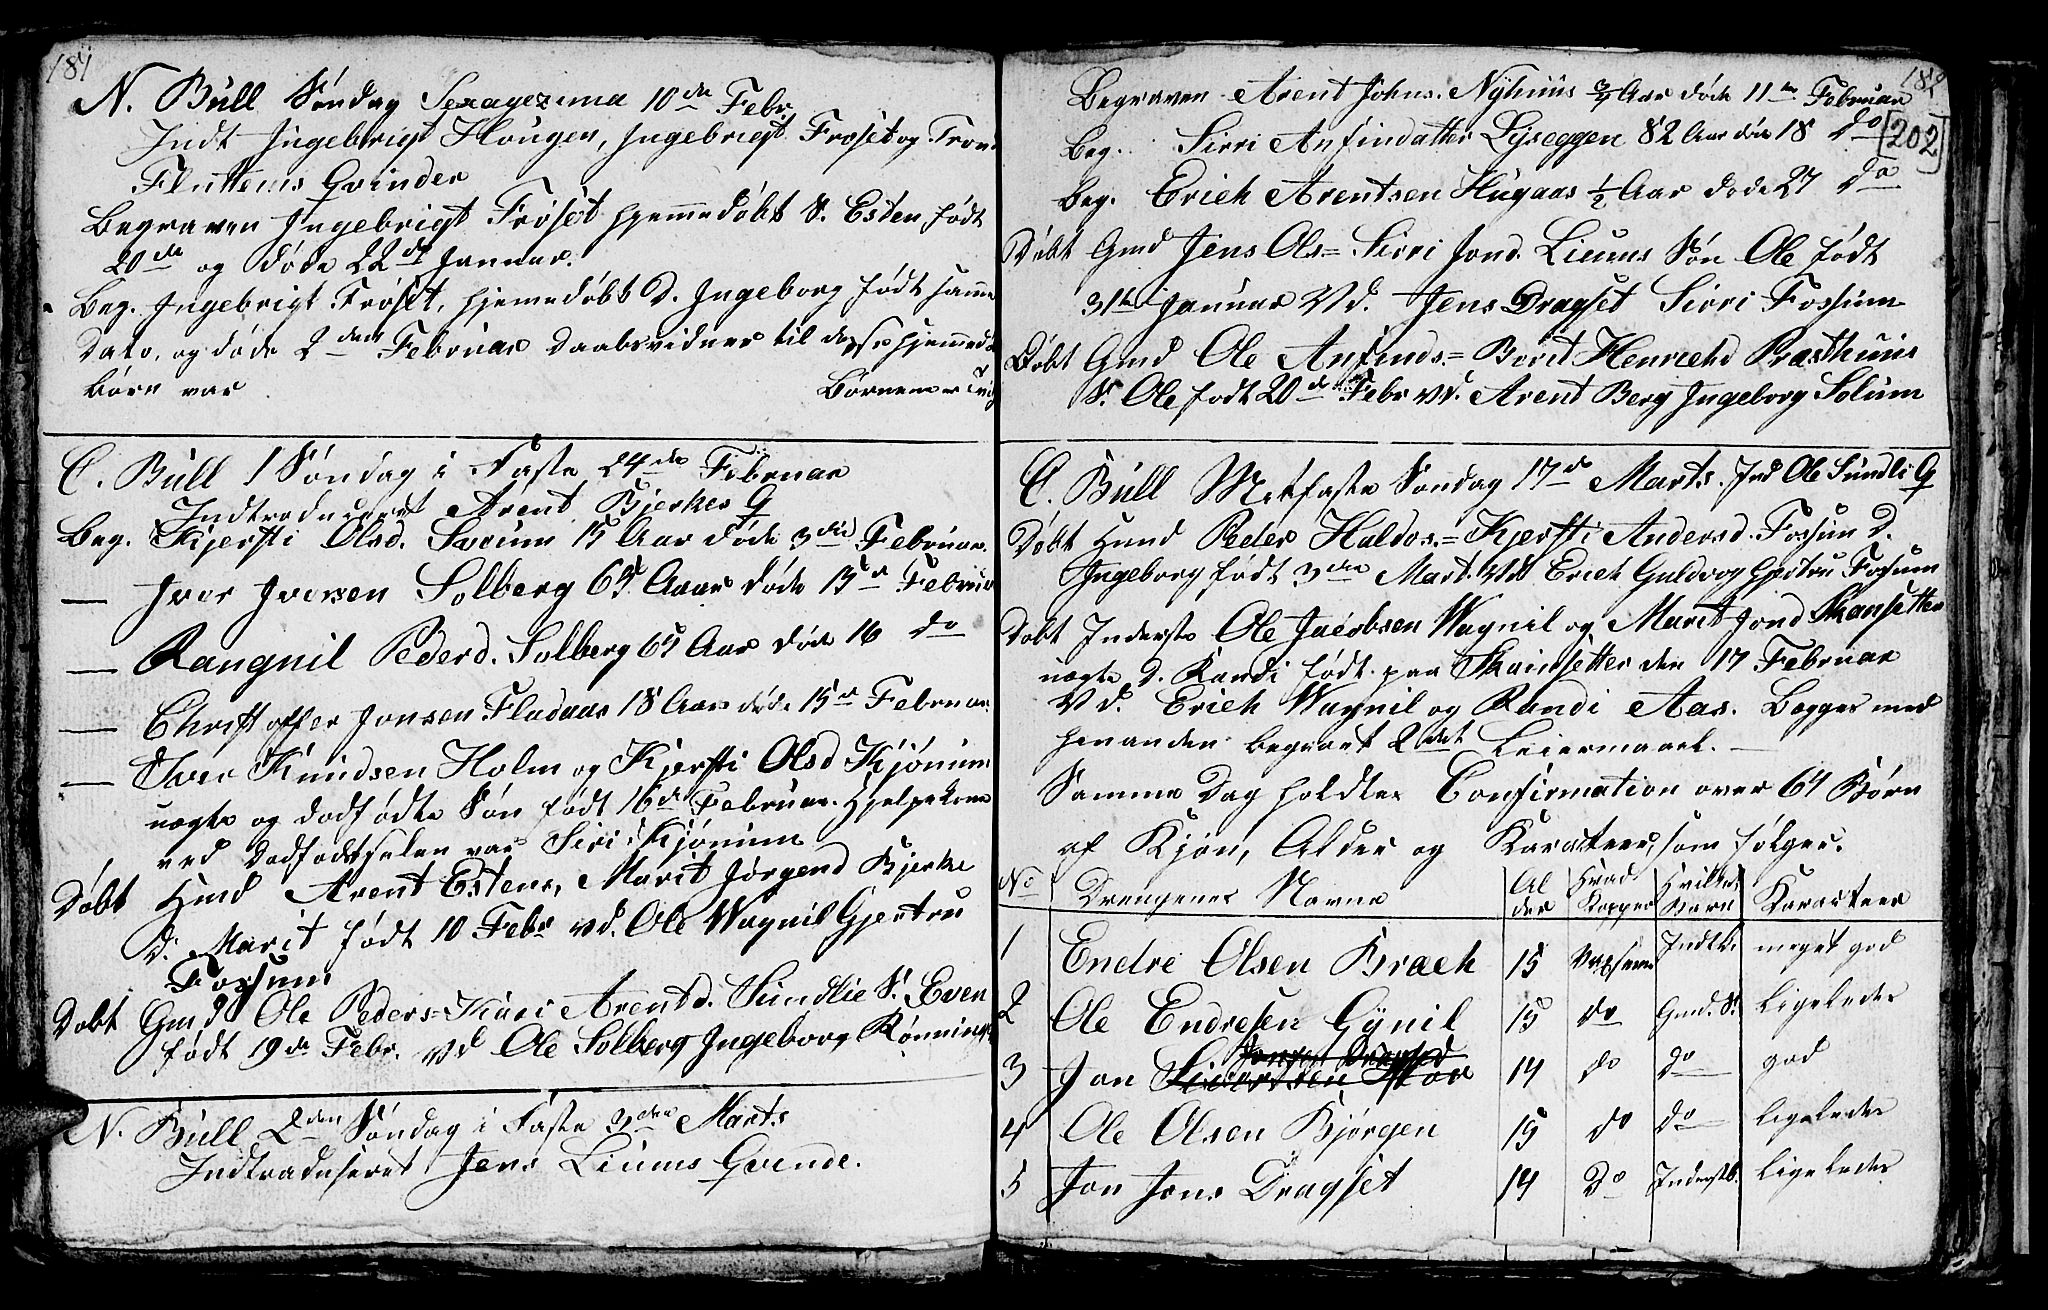 181
N. Bull Søndag Sexagezima 10de Febr.
Indt Ingebrigt Hougen, Ingebrigt Frøset og Tron
Fluttems Qvinder
Begraven Ingebrigt Frøset hjemmedøbt S. Esten født
20de og døde 22de Januar.
Beg. Ingebrigt Frøset, hjemmedøbt D. Ingeborg født samme
Dato, og døde 2den Februar Daabsvidner til disse hjemmed
børn var Børnene er Tvil
C. Bull 1 Søndag i Faste 24de Februar
Indtroduceret Arent Bjerkes Q
Beg. Kjersti Olsd. Svorum 15 Aar døde 3die Februar.
— Iver Iversen Solberg 65 Aar døde 15de Februar
— Rangnil Pederd. Solberg 65 Aar døde 16 do
— Christoffer Jonsen Fladaas 18 Aar døde 15de Februar.
— Iver Knudsen Holm og Kjersti Olsd Kjønum
uegte og dødfødte Søn født 16de Februar. Hjelpekone
ved Dødfødselen var Siri Kjønum
Døbt Hmd Arent Estens, Marit Jørgend Bjerke
D. Marit født 10 Febr vd. Ole Wagnil Gjertru
Fossum
Døbt Gmd Ole Peders= Kari Arentd. Sundlie S. Even
født 19de Febr. vd Ole Solberg Ingeborg Rønning
N. Bull 2den Søndag i Faste 3die Marts
Indtroduseret Jens Liums Qvinde.
182
202
Begraven Arent Johns. Nyhuus 3/4 Aar døde 11te Februar
Beg. Sirri Anfindatter Lyseggen 82 Aar døde 18 do
Beg. Erich Arentsen Hugaas 1/2 Aar døde 27 do
Døbt Gmd Jens Ols= Sirri Jond. Liums Søn Ole født
31te Januar Vd. Jens Dragset Sirri Fossum
Døbt Gmd Ole Anfinds= Borit Henrichd Prasthuus
S. Ole født 20de Febr vd. Arent Berg Ingeborg Solum
C. Bull Metfaste Søndag 17de Marts. Ind Ole Sundli Q
Døbt Hmd Peder Haldos.= Kjersti Andersd. Fossum D.
Ingeborg født 3die Mart. vd Erich Guldv og Gjertru Fossum
Døbt Inderste Ole Jacobsen Wagnil og Marit Jond Skansetter
uegte D. Randi født paa Skansetter den 17 Februar
Vd. Erich Wagnil og Randi Aas. Begges med
hinanden begaaet 2det Leiermaal. —
Samme Dag holdtes Confirmation over 64 Børn
af Kjøn, Alder og Karacteer, som følger.
No Drengenes Navne Alder Hvad Kopper Hvilkes Barn Karacteer
1 Endre Olsen Kraek 15 Vaxsene Indtb. meget god
2 Ole Endresen Gynil 15 do Gmd. S. ligeledes
Jonsen Dragsed
3 Jon Siversen Moe 14 do do god
4 Ole Olsen Bjørgen 15 do do ligeledes
5 Jon Jons Dragset 14 do Inderstb. ligeledes